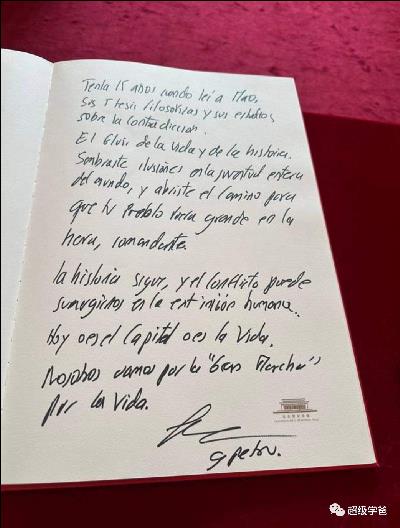 Tenía 15 años cuando leí a Mao,
Sus 5 tesis filosóficas y sus estudios
sobre la contradicción.
El fluir de la vida y de la historia.
Sembraste ilusiones en la juventud entera
del mundo, y abriste el camino para
que tu Pueblo fuera grande en la
hora, comandante.
la historia sigue, y el conflicto puede
sumergirnos en la extinción humana.
Hoy o es el Capital o es la Vida.
Nosotros vamos por la "Gran Marcha"
por la Vida.
G Petro.
超级学爸